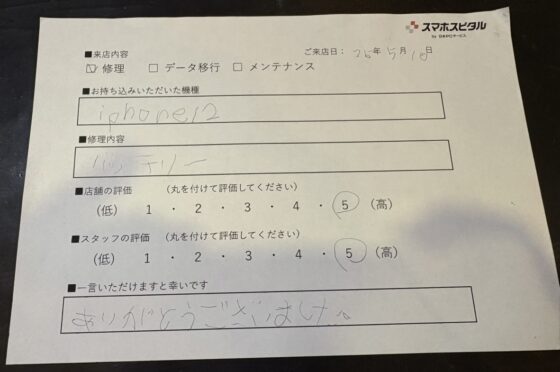 スマホスピタル
■来店内容
ご来店日：25年5月18日
☑ 修理 □ データ移行 □ メンテナンス
■お持ち込みいただいた機種
iphone12
■修理内容
バッテリー
■店舗の評価 （丸を付けて評価してください）
（低） 1 ・ 2 ・ 3 ・ 4 ・ 5 （高）
■スタッフの評価 （丸を付けて評価してください）
（低） 1 ・ 2 ・ 3 ・ 4 ・ 5 （高）
■一言いただけますと幸いです
ありがとうございました。